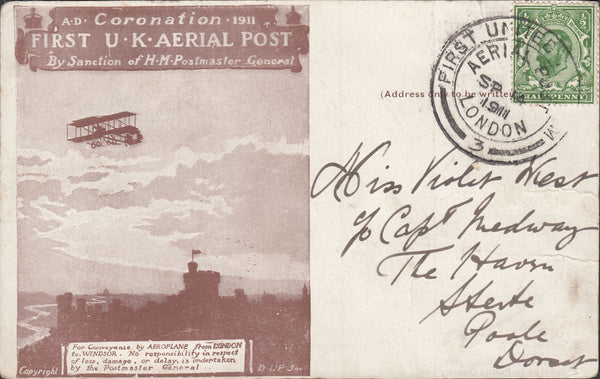 A·D· Coronation · 1911
FIRST U·K·AERIAL POST
By Sanction of H·M·Postmaster General
For Conveyance by AEROPLANE from LONDON
to WINDSOR. No responsibility in respect
of loss, damage, or delay, is undertaken
by the Postmaster General
Copyright
(Address only to be written
FIRST UNITED
AERIAL POST
1911
LONDON
3
HALF PENNY
Miss Violet West
c/o Capt Medway
The Haven
Sterte
Poole
Dorset